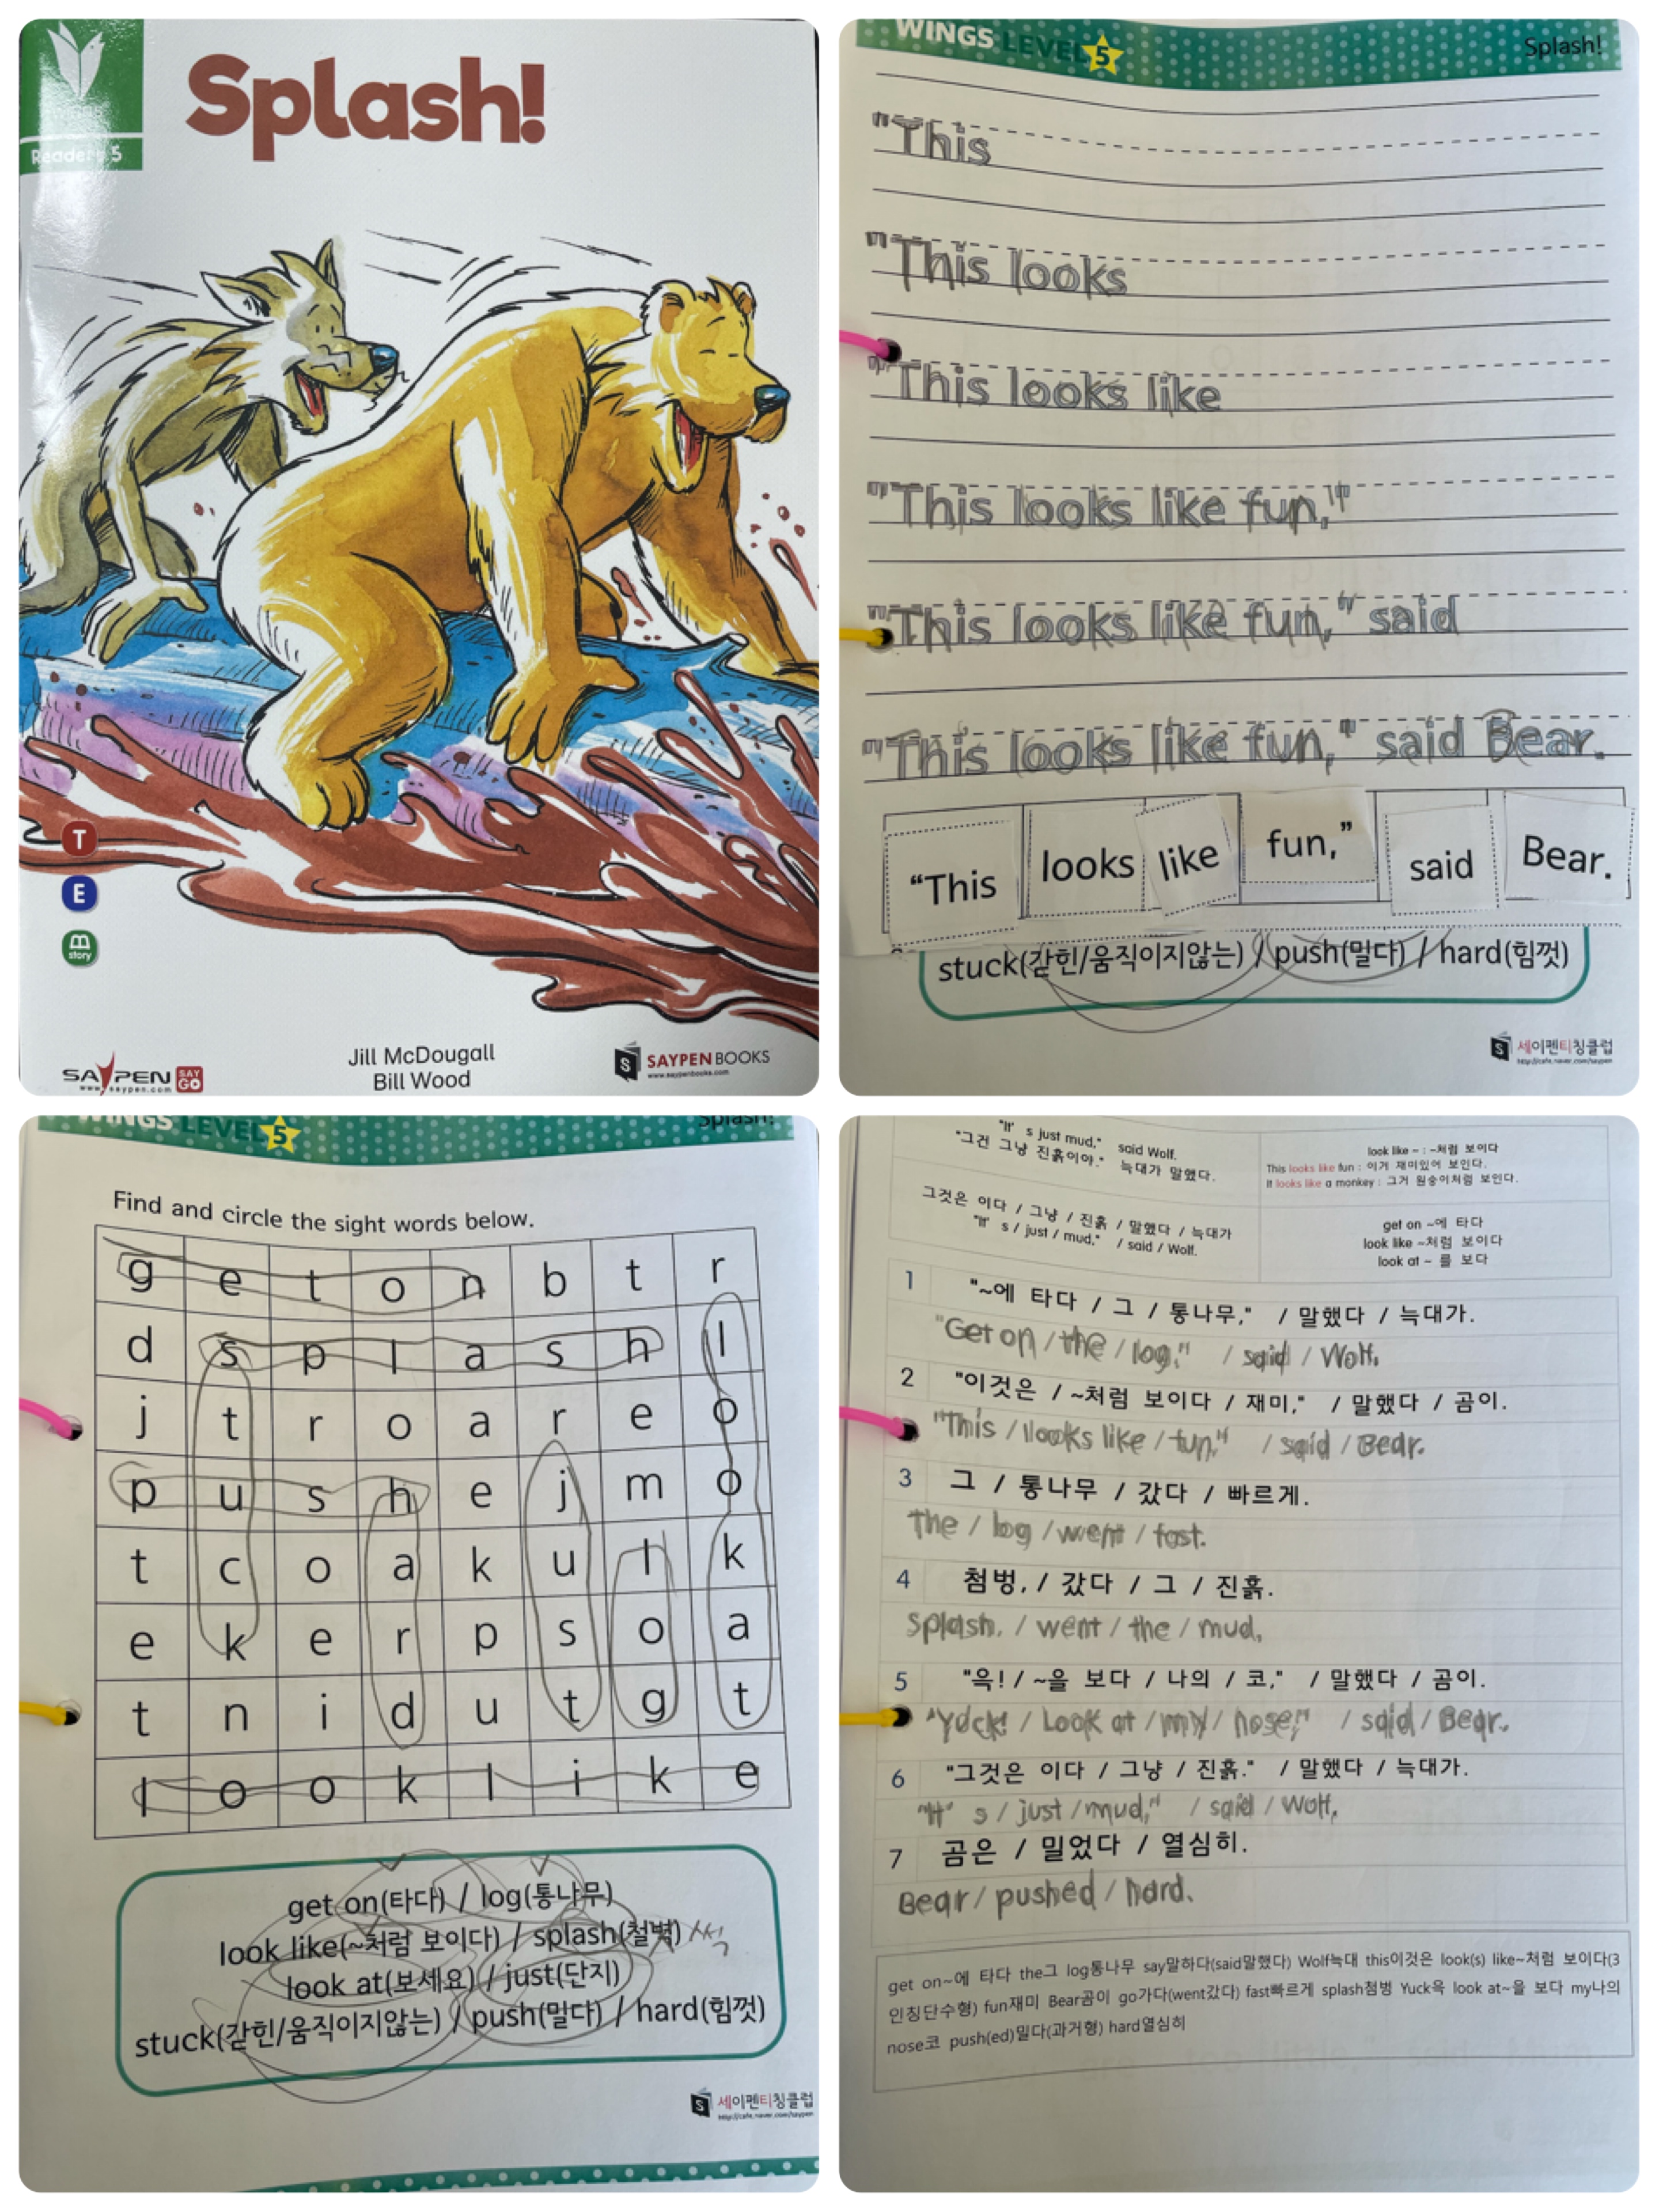 Readers 5
Splash!
T
E
story
SAYPEN SAY GO
www.saypen.com
Jill McDougall
Bill Wood
S SAYPEN BOOKS
www.saypenbooks.com
WINGS LEVEL 5
Splash!
"This
"This looks
"This looks like
"This looks like fun,"
"This looks like fun," said
"This looks like fun," said Bear.
“This looks like fun,” said Bear.
stuck(갇힌/움직이지않는) / push(밀다) / hard(힘껏)
S 세이펜티칭클럽
http://cafe.naver.com/saypen
WINGS LEVEL 5
Splash!
Find and circle the sight words below.
g e t o n b t r
d s p l a s h l
j t r o a r e o
p u s h e j m o
t c o a k u l k
e k e r p s o a
t n i d u t g t
l o o k l i k e
get on(타다) / log(통나무)
look like(~처럼 보이다) / splash(철벅) /썩
look at(보세요) / just(단지)
stuck(갇힌/움직이지않는) / push(밀다) / hard(힘껏)
S 세이펜티칭클럽
http://cafe.naver.com/saypen
"It' s just mud," said Wolf.
"그건 그냥 진흙이야." 늑대가 말했다.
그것은 이다 / 그냥 / 진흙 / 말했다 / 늑대가
"It' s / just / mud," / said / Wolf.
look like ~ : ~처럼 보이다
This looks like fun : 이거 재미있어 보인다.
It looks like a monkey : 그거 원숭이처럼 보인다.
get on ~에 타다
look like ~처럼 보이다
look at ~ 를 보다
1 "~에 타다 / 그 / 통나무," / 말했다 / 늑대가.
"Get on / the / log," / said / Wolf.
2 "이것은 / ~처럼 보이다 / 재미," / 말했다 / 곰이.
"This / looks like / fun," / said / Bear.
3 그 / 통나무 / 갔다 / 빠르게.
The / log / went / fast.
4 첨벙, / 갔다 / 그 / 진흙.
Splash, / went / the / mud.
5 "윽! / ~을 보다 / 나의 / 코," / 말했다 / 곰이.
"Yuck! / Look at / my / nose," / said / Bear.
6 "그것은 이다 / 그냥 / 진흙." / 말했다 / 늑대가.
"It' s / just / mud," / said / Wolf.
7 곰은 / 밀었다 / 열심히.
Bear / pushed / hard.
get on~에 타다 the그 log통나무 say말하다(said말했다) Wolf늑대 this이것은 look(s) like~처럼 보이다(3
인칭단수형) fun재미 Bear곰이 go가다(went갔다) fast빠르게 splash첨벙 Yuck윽 look at~을 보다 my나의
nose코 push(ed)밀다(과거형) hard열심히